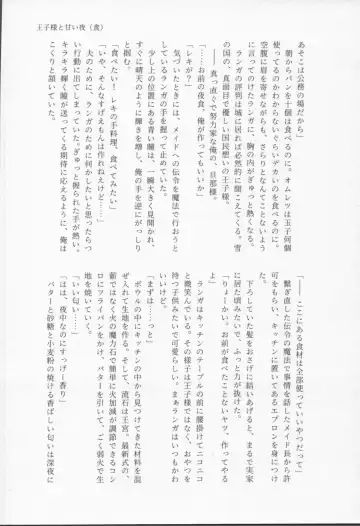 王子様と甘い夜（食）
あそこは公務の場だから」
朝からパンを十個は食べるのに。オムレツは玉子何個
使ってるのかわからないぐらいデカいのを食べるのに。
空腹に眉を寄せながらも、さらりとなんてことない風
に言ってのけたランガに、胸の奥がぎゅっと熱くなる。
ランガの評判は城に居れば必然的に聞こえてくる。雪
の国の、真面目で優しい国民想いの王子様。
――真っ直ぐで努力家な俺の、旦那様。
「……お前の夜食、俺が作ってもいいか」
「レキが？」
気づいたときには、メイドへの伝令を魔法で行おうと
するランガの手を握って止めていた。
少し上の位置にある青い瞳は、一瞬大きく見開かれ、
すぐに晴天のように輝きを増し、俺の手を逆にがっし
り握ってきた。
「食べたい！　レキの手料理、食べてみたい」
「いや、そんなすげえもんは作れねえけど……」
夫のために、ランガのために何かしたいと思ったらつ
い行動に出てしまっていた。ぎゅっと握られた手が熱い。
キラキラ輝く瞳が送ってくる期待に応えるように、俺は
こくりと頷いていた。
「――ここにある食材は全部使っていいやつだって」
繋ぎ直した伝令の魔法で事情を話したメイド長から許
可をもらい、キッチンに置いてあるエプロンを身につけ
る。
下ろしていた髪をおさげに結いあげると、まるで実家
に居た頃みたいで、ふっと力が抜けた。
「じゃあ……俺がお前に食べてほしいヤツ、作ってやる
よ！」
ランガはキッチンのテーブルの前に腰掛けてニコニコ
と微笑んでいる。その様子は王子様ではなく、おやつを
待つ子供みたいで可愛らしい。まぁランガはいつもかわ
いいけど。
「まずは……っと」
ボウルの中にキッチンの中から見つけてきた材料を混
ぜ入れて生地を作る。そして、流石は王宮。最新式の、
薪ではなく火の魔力石で簡単に火加減が調節できるコン
ロにフライパンをかけ、バターを引いて、ごく弱火で生
地を焼いていく。
「いい匂い……」
「はは、夜中なのにすっげー香り」
バターと砂糖と小麦粉の焼ける香ばしい匂いは深夜に